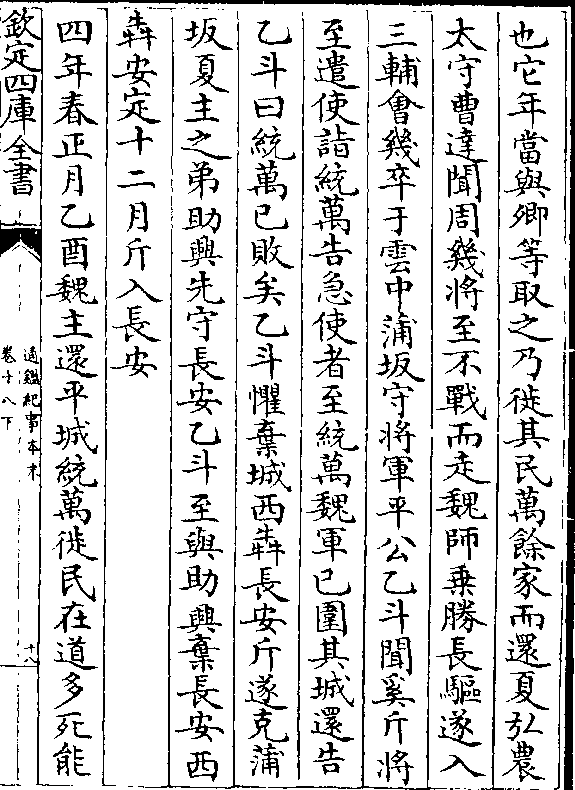 也它年當與卿等取之乃徙其民萬餘家而還夏弘農
太守曹達聞周幾將至不戰而走魏師乗勝長驅遂入
三輔會幾卒于雲中蒲坂守將軍平公乙斗聞奚斤將
至遣使詣統萬告急使者至統萬魏軍已圍其城還告
乙斗曰統萬已敗矣乙斗懼棄城西犇長安斤遂克蒲
坂夏主之弟助興先守長安乙斗至與助興棄長安西
犇安定十二月斤入長安
四年春正月乙酉魏主還平城統萬徙民在道多死能
欽定四庫全書
通鑑紀事本末
卷十八下
十八